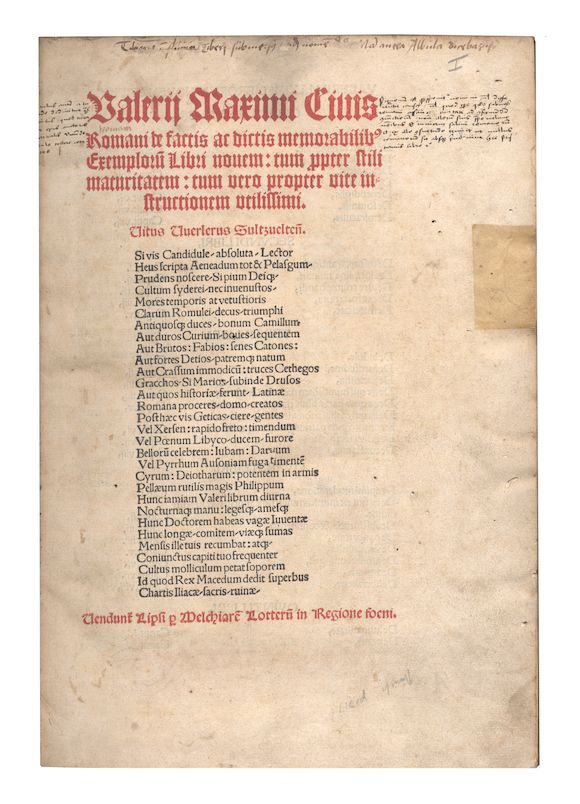 Valerij Maximi Ciuis
Romani de factis ac dictis memorabilibꝰ
Exemplorũ Libri nouem: tum ꝓpter stili
maturitatem: tum vero propter vite in-
structionem vtilissimi.
Uitus Uuerlerus Sultzueltẽ.
Si vis Candidule-absoluta-Lector
Heus scripta Aeneadum tot & Pelasgum-
Prudens noscere-Si pium Deiqꝫ-
Cultum syderei-nec inuenustos-
Mores temporis at vetustioris
Clarum Romulei-decus-triumphi
Antiquosqꝫ duces-bonum Camillum
Aut duros Curium-boues-sequentem
Aut Brutos: Fabios: senes Catones:
Aut fortes Detios-patremqꝫ natum
Aut Crassum immodicũ: truces Cethegos
Gracchos-Si Marios-subinde Drusos
Aut quos historiæ-ferunt-Latinæ
Romana proceres-domo-creatos
Posthæc vis Geticas-ciere-gentes
Vel Xersen: rapido freto: timendum
Vel Pœnum Libyco-ducem-furore
Bellorũ celebrem: Iubam: Darium
Vel Pyrrhum Ausoniam fuga timentẽ
Cyrum: Deiotharum: potentem in armis
Pellæum rutilis magis Philippum
Hunc iam iam Valeri librum diurna
Nocturnaqꝫ manu: legesqꝫ-amesqꝫ
Hunc Doctorem habeas vagæ Iuuentæ
Hunc longæ-comitem-viæqꝫ sumas
Mensis ille tuis recumbat: atqꝫ-
Coniunctus capiti tuo frequenter
Cultus molliculum petat soporem
Id quod Rex Macedum dedit superbus
Chartis Iliacæ-sacris-ruinæ-
Uendunt̃ Lipsi ꝑ Melchiarẽ Lotterũ in Regione foeni.
I